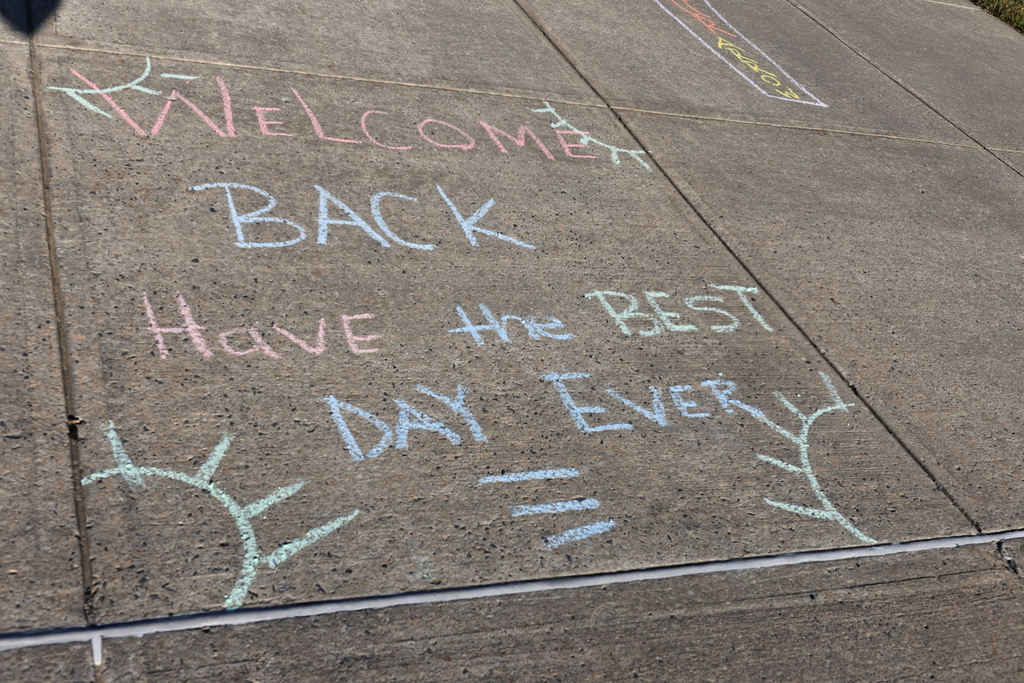 WELCOME
BACK
Have the BEST
DAY EVER